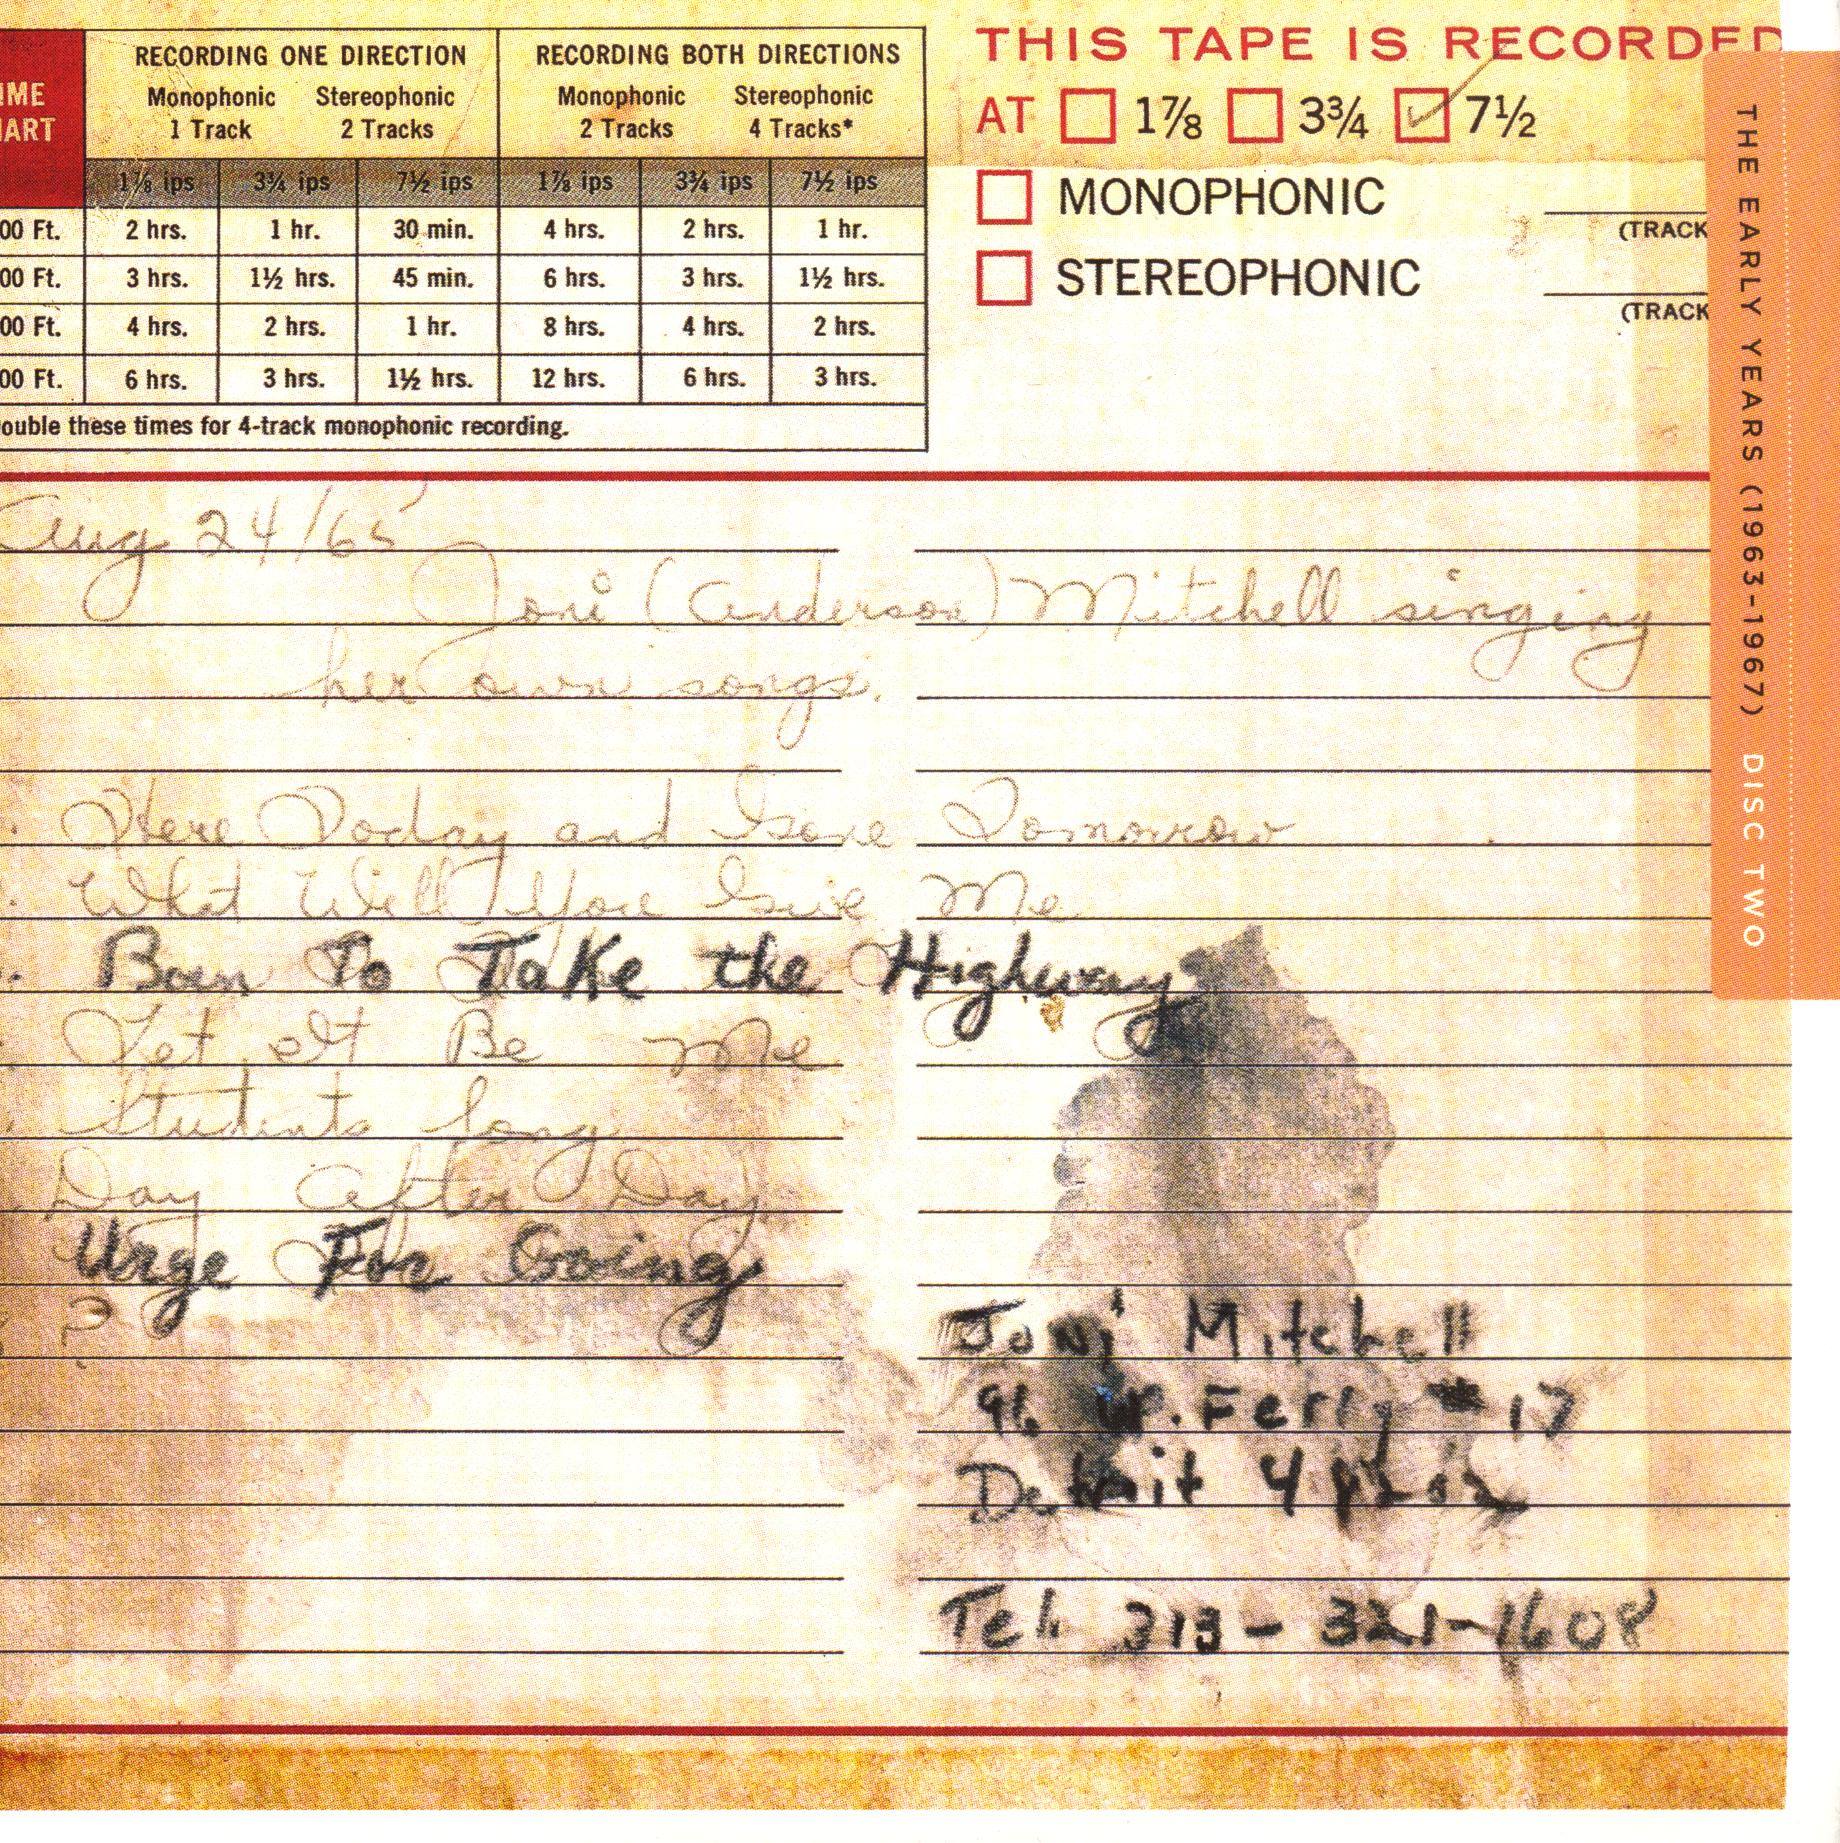 IME
HART
RECORDING ONE DIRECTION RECORDING BOTH DIRECTIONS
Monophonic Stereophonic Monophonic Stereophonic
1 Track 2 Tracks 2 Tracks 4 Tracks*
1⅞ ips 3¾ ips 7½ ips 1⅞ ips 3¾ ips 7½ ips
00 Ft. 2 hrs. 1 hr. 30 min. 4 hrs. 2 hrs. 1 hr.
00 Ft. 3 hrs. 1½ hrs. 45 min. 6 hrs. 3 hrs. 1½ hrs.
00 Ft. 4 hrs. 2 hrs. 1 hr. 8 hrs. 4 hrs. 2 hrs.
00 Ft. 6 hrs. 3 hrs. 1½ hrs. 12 hrs. 6 hrs. 3 hrs.
ouble these times for 4-track monophonic recording.
THIS TAPE IS RECORDED
AT 1⅞ 3¾ 7½
MONOPHONIC
(TRACK
STEREOPHONIC
(TRACK
THE EARLY YEARS (1963-1967) DISC TWO
Aug 24/65
Joni (Anderson) Mitchell singing
her own songs.
Here Today and Gone Tomorrow
What Will You Give Me
Born To Take the Highway
Let It Be Me
Students Song
Day After Day
Urge For Going
?
Joni Mitchell
96 W. Ferry #17
Detroit
Tel. 313-321-1608